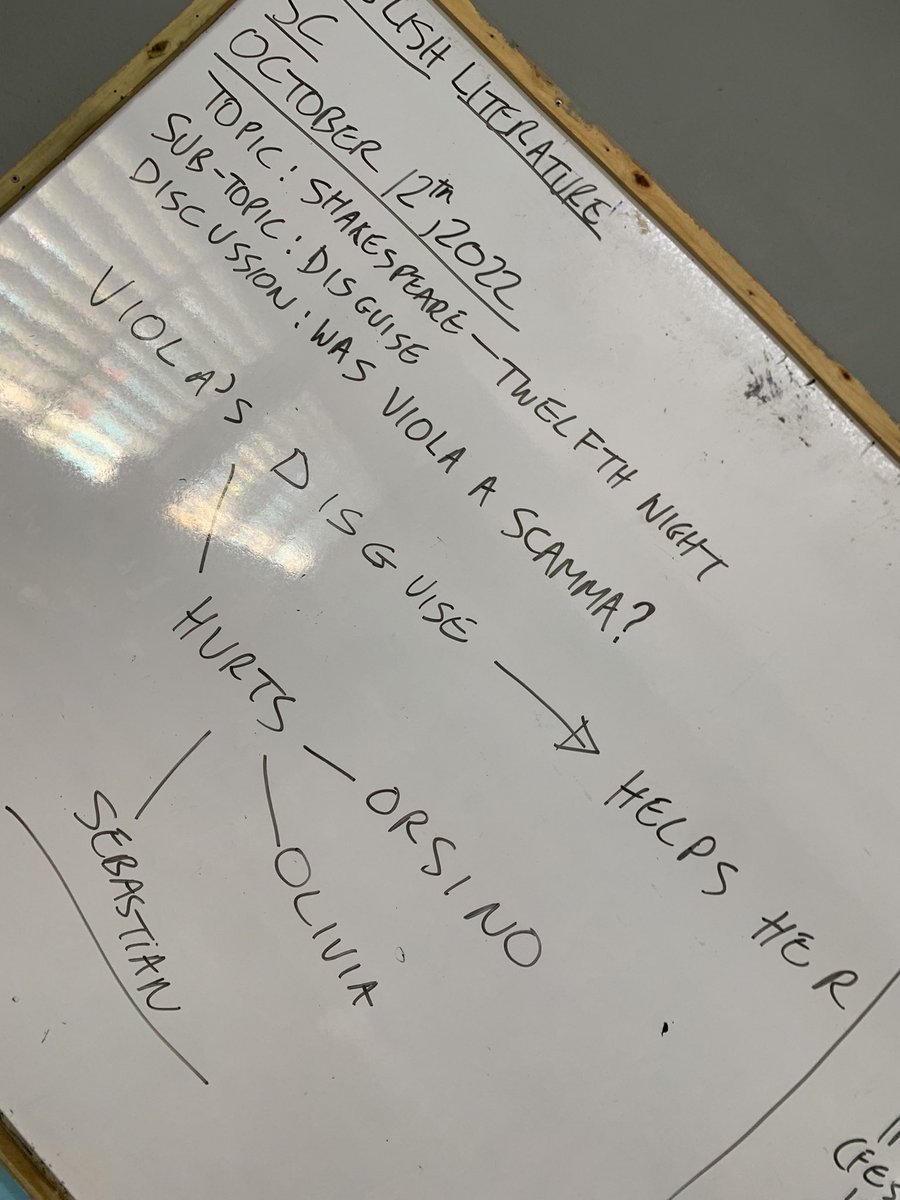 LISH LITERATURE
SC
OCTOBER 12th, 2022
TOPIC: SHAKESPEARE — TWELFTH NIGHT
SUB-TOPIC: DISGUISE
DISCUSSION: WAS VIOLA A SCAMMA?
VIOLA'S DISGUISE → HELPS HER
HURTS
SEBASTIAN
OLIVIA
ORSINO
(FES